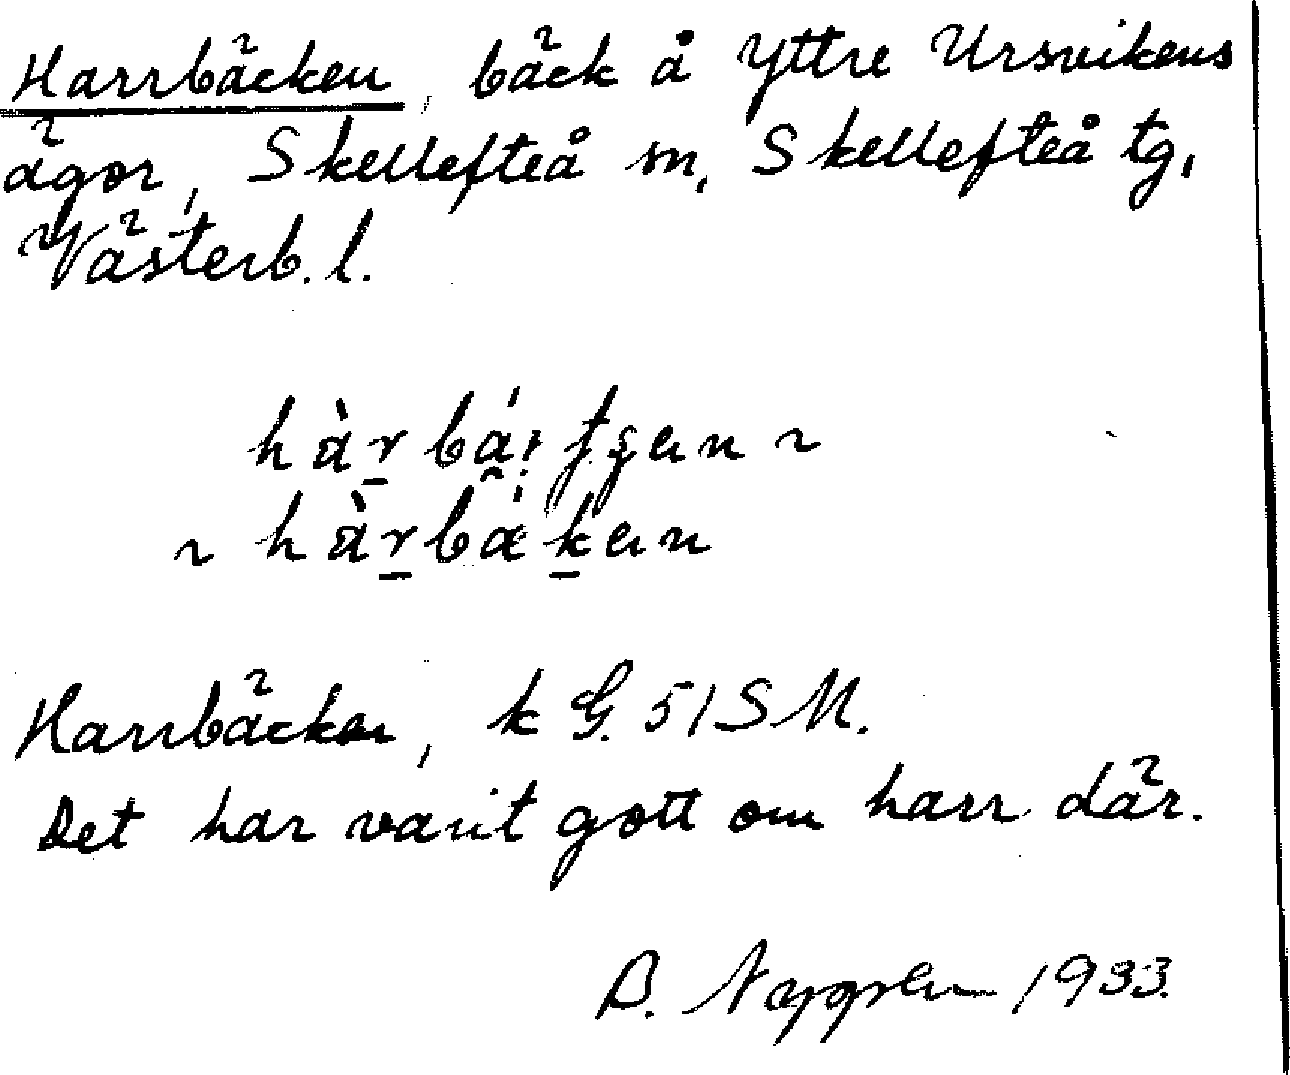 Harrbäcken, bäck å Yttre Ursvikens
ägor, Skellefteå sn, Skellefteå tg,
Västerb. l.
~
~
Harrbäcken, k G. 51 S M.
Det har varit gott om harr där.
B. 1933.